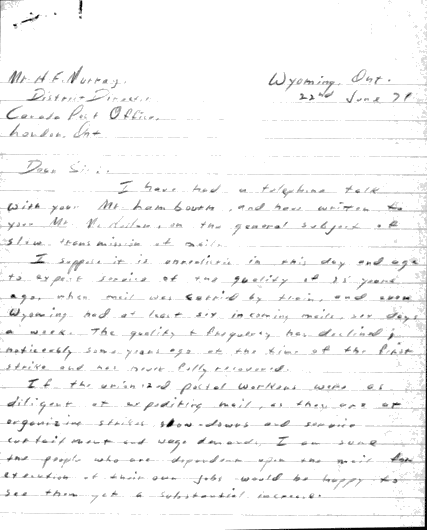 Mr. H. F. Murray.
Wyoming, Ont.
District Director
22nd June 79
Canada Post Office,
London, Ont
Dear Sir:
I have had a telephone talk
with your Mr. Lambourn, and have written to
your Mr. on the general subject of
slow transmission of mail.
I suppose it is unrealistic in this day and age
to expect service of the quality of 25 years
ago, when mail was carried by train, and even
Wyoming had at least six incoming mails, six days
a week. The quality & frequency has declined
noticeably some years ago at the time of the first
strike and has never fully recovered.
If the unionized postal workers were as
diligent at expediting mail, as they are at
organizing strikes, slow-downs and service
curtailment and wage demands, I am sure
the people who are dependent upon the mail for
execution of their own jobs would be happy to
see them get a substantial increase.